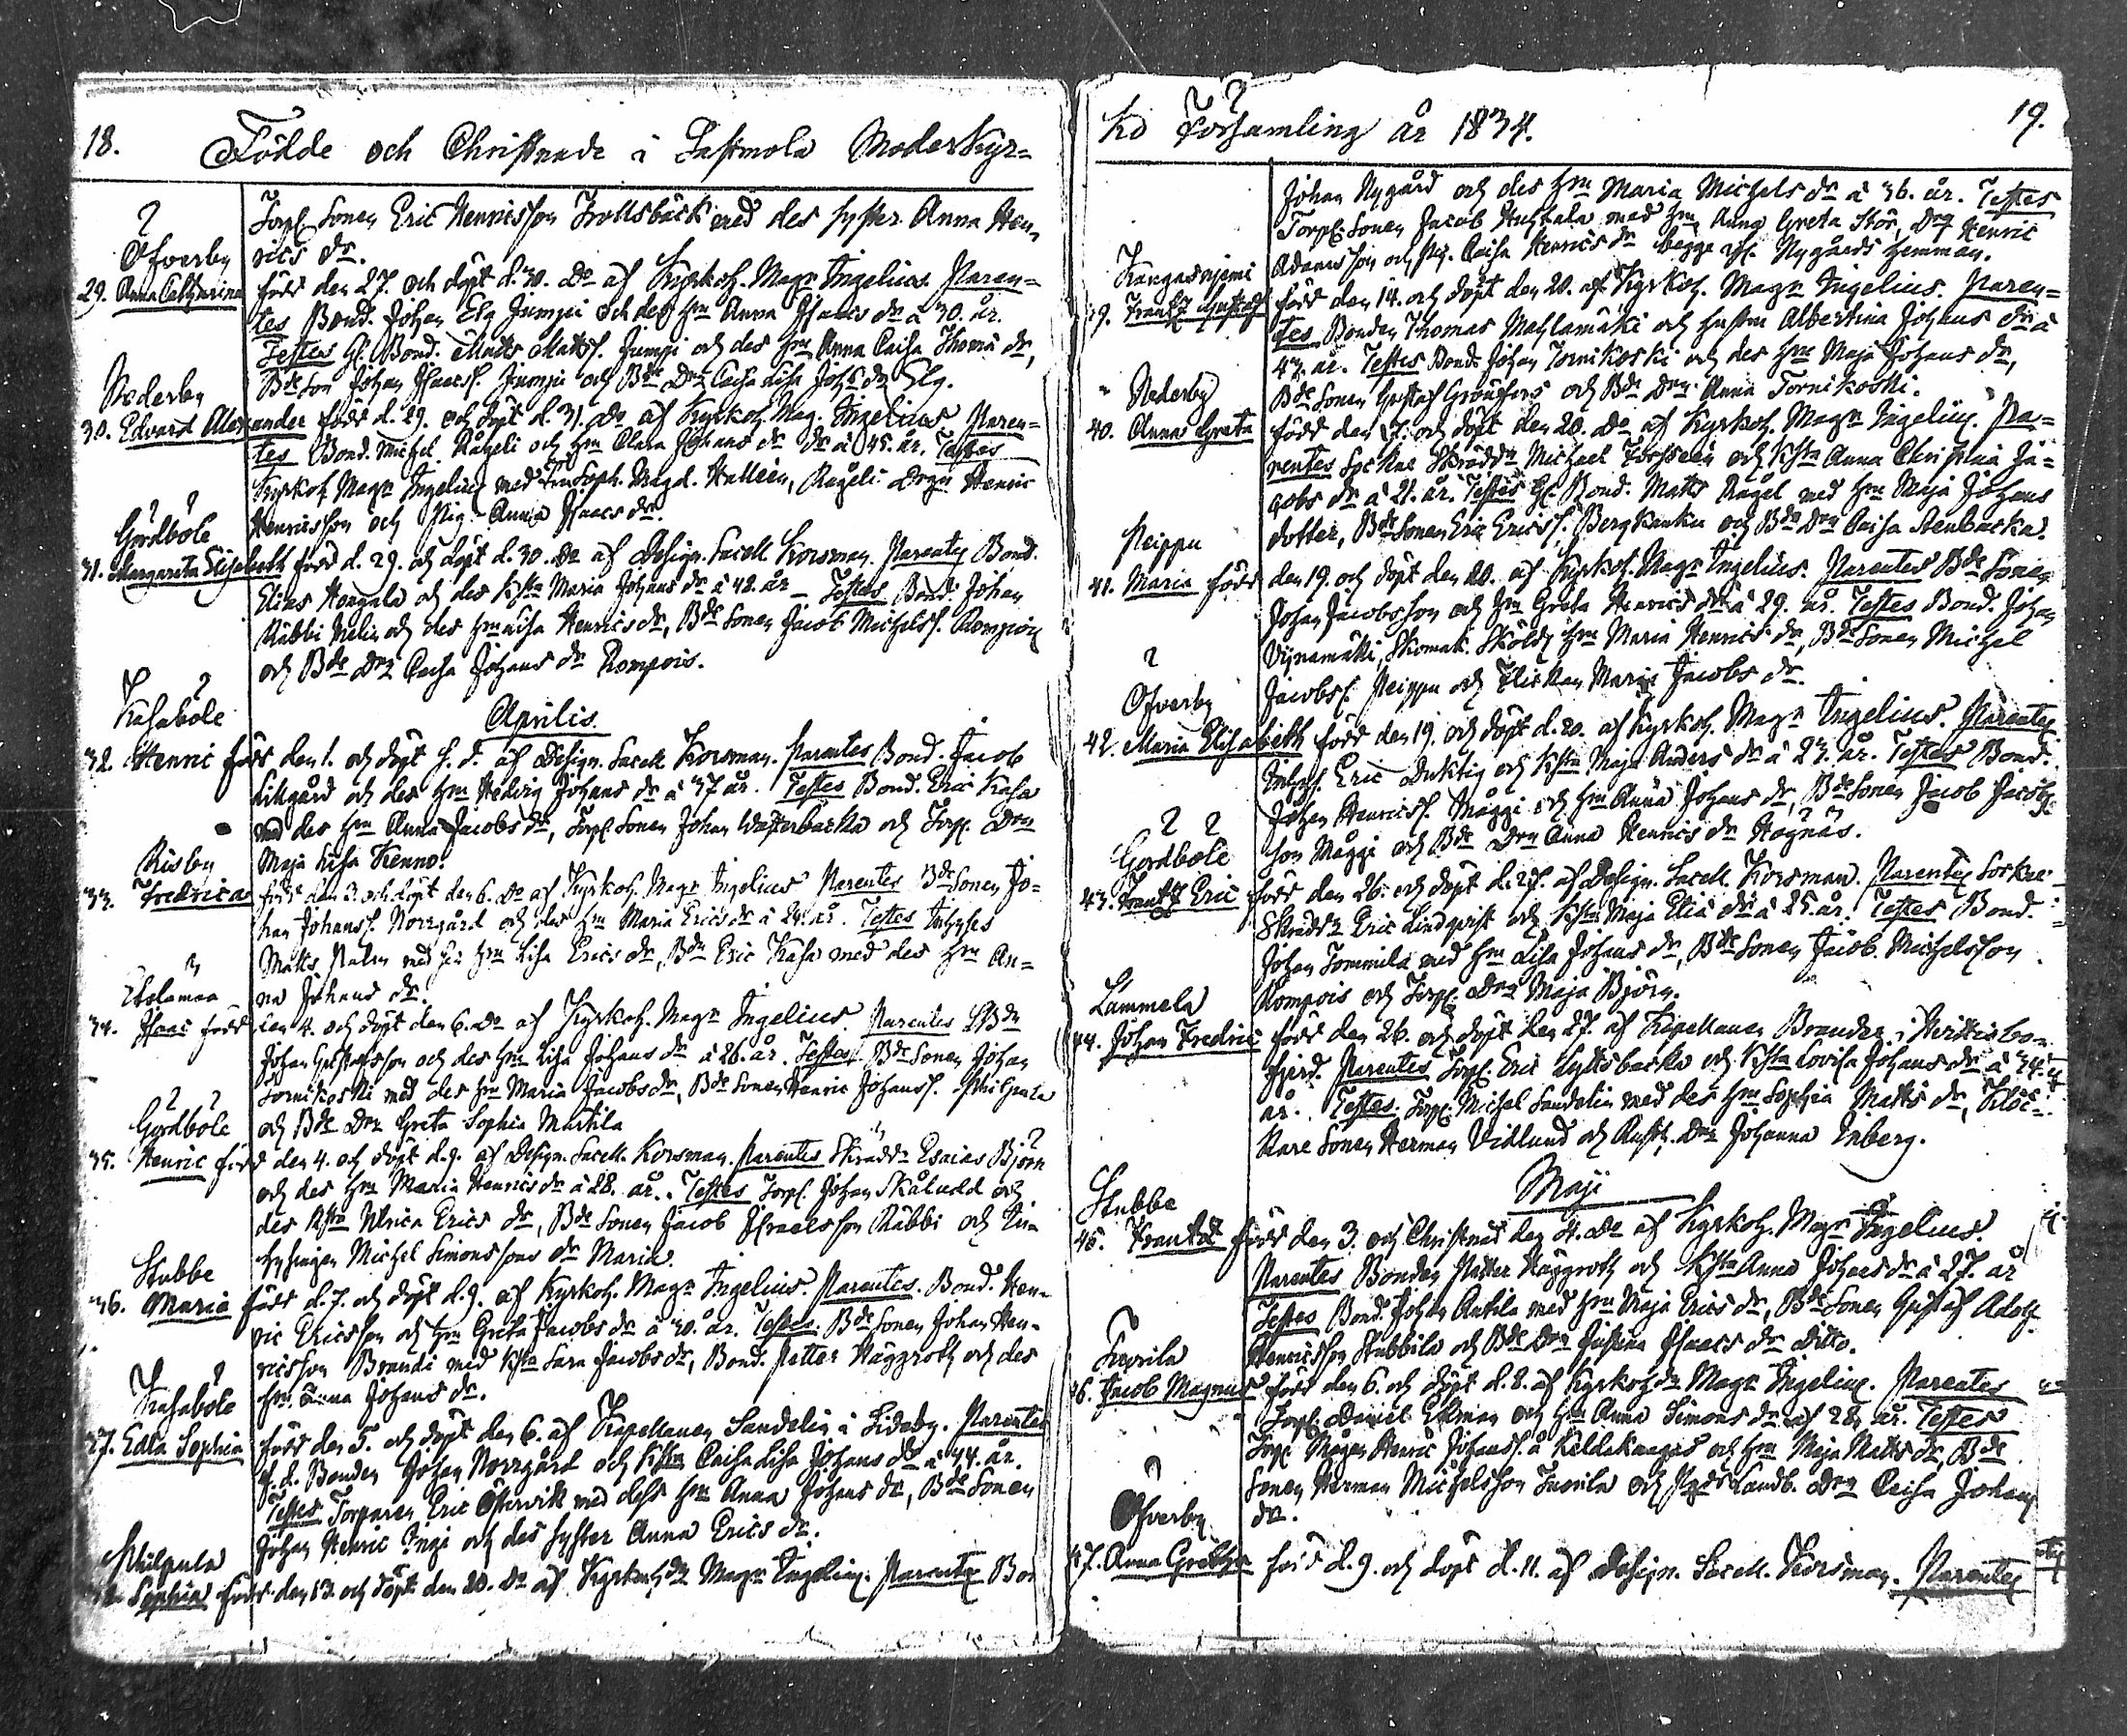 18. Födde och Christnade i Lastmola Moderkyr=
Torp. Sonen Eric Henricsson Trollsbäck med des syster Anna Hen
rics dr.
Ofverby
29. Anna Catharina född den 27. och döpt d. 30. do af Kyrkoh. Magr Ingelius. Paren=
tes Bond. Johan Elg Jumpi och des hm Anna Isaacs dr à 30. år.
Testes Bond. Matts Matts. Jumpi och des hm Anna Caisa Thoms dr,
Bde Son Johan Isaacs. Jumpi och Bde Dr Caisa Lisa Elg.
Nederby
30. Edvard Alexander född d. 29. och döpt d. 31. do af Kyrkoh. Mag. Ingelius Paren=
tes Bond. Michel Rågeli och hm Clara Johans dr à 45. år. Testes
Kyrkoh. Magr Ingelius med Soph. Magd. Rågeli Henric
Henricsson och Pig. Anna Isaacs dr.
Gördböle
31. Margareta Elisabeth född d. 29. och döpt d. 30. do af Design. Sacell. Korsman. Parentes Bond.
Elias Hongala och des hst Maria Johans dr à 42. år Testes Bond. Johan
Räbbi och des hm Lisa Henrics dr, Bde Sonen Jacob Michels. Rompoin
och Bde Dr Caisa Johans dr Rompois.
Kasaböle
Aprilis.
32. Henric född den 1. och döpt s. d. af Design. Sacell Korsman. Parentes Bond. Jacob
Lillgård och des hm Hedvig Johans dr à 37 år. Testes Bond. Eric Kasa
med des hm Anna Jacobs dr, Torp. Sonen Johan Westerbacka och Torp. Dr
Maja Lisa Kenno.
Risby
33. Fredrica född den 3. och döpt den 6. do af Kyrkoh. Magr Ingelius Parentes Bde Sonen Jo=
han Johans. Norrgård och des hm Maria Erics dr à 24. år. Testes Inhyses
Matts Palm med hm Lisa Erics dr, Bdn Eric Kasa med des hm An=
na Johans dr.
34. Isaac född den 4. och döpt den 6. do af Kyrkoh. Magr Ingelius Parentes Bdn
Johan Gustafsson och des hm Lisa Johans dr à 26. år. Testes Bde Sonen Johan
Tornikoski med des hm Maria Jacobs dr, Bde Sonen Henric Johans. Philpula
och Bde Dr Greta Sophia Martila
Gordböle
35. Henric född den 4. och döpt d. 9. af Design. Sacell. Korsman. Parentes Skrädd. Esaias Björn
och des hm Maria Henrics dr à 28. år. Testes Torp. Johan Skåludd och
des hst Ulrica Erics dr, Bde Sonen Jacob Israelsson Räbbi och In
hysingen Michel Simonssons dr Maria.
Stubbe
36. Maria född d. 7. och döpt d. 9. af Kyrkoh. Magr Ingelius. Parentes. Bond. Hen
ric Ericsson och hm Greta Jacobs dr à 30. år. Testes. Bde Sonen Johan Hen=
ricsson Brandi med hst Sara Jacobs dr, Bond. Petter Häggroth och des
hm. Anna Johans dr.
Kasaböle
37. Edla Sophia född den 5. och döpt den 6. af Kapellanen Sandelin i Sideby. Parentes
f. d. Bonden Johan Norrgård och hst Caisa Lisa Johans dr à 44. år.
Testes Torparen Eric Österwik med dess hm Anna Johans dr, Bde Sonen
Johan Henric Ingi och des syster Anna Erics dr.
Philpula
Sophia född den 13. och döpt den 20. do af Kyrkoh. Magr Ingelius. Parentes Bon
ko Församling år 1834. 19.
Johan Nygård och des hm Maria Michels dr à 36. år. Testes
Torp. Sonen Jacob Huhtala med hm Anna Greta Stör, Dr Henric
Adamsson och Pig. Caisa Henrics dr begge Nygårds hemman.
Kangasnjemi
39. Frantz Gustaf född den 14. och döpt den 20. af Kyrkoh. Magr Ingelius. Paren=
tes Bonden Thomas Mahlamäki och hustru Albertina Johans dr à
43. år. Testes Bond. Johan Tornikoski och des hm Maja Johans dr,
Bde Sonen Gustaf Grönfors och Bde Dr Anna Tornikoski.
Nederby
40. Anna Greta född den 17. och döpt den 20. do af Kyrkoh. Magr Ingelius. Pa=
rentes Sockne Skrädd. Michael Forsteen och hst Anna Christina Ja=
cobs dr à 21. år. Testes Bond. Matts Rågel med hm Maja Johans
dotter, Bde Sonen Eric Erics. Bergkanku och Bde Dr Caisa Stenbacka.
Peippu
41. Maria född den 19. och döpt den 20. af Kyrkoh. Magr Ingelius. Parentes Bde Sonen
Johan Jacobsson och hm Greta Henrics dr à 29. år. Testes Bond. Johan
Vijnamäki, Skomak. Sköld hm Maria Henrics dr, Bde Sonen Michel
Jacobs. Peippu och Flickan Maria Jacobs dr.
Ofverby
42. Maria Elisabeth född den 19. och döpt d. 20. af Kyrkoh. Magr Ingelius. Parentes
Inhys. Eric Duktig och hst Maja Anders dr à 23. år. Testes Bond.
Johan Henrics. Mäggi och hm Anna Johans dr, Bde Sonen Jacob Jacobs
son Mäggi och Bde Dr Anna Henrics dr Hagnäs.
Gordböle
43. Frantz Eric född den 26. och döpt d. 27. af Design. Sacell. Korsman. Parentes Sockne
Skrädd. Eric Lindqvist och hst Maja Elia dr à 25. år. Testes Bond.
Johan Tommila med hm Lisa Johans dr, Bde Sonen Jacob Michelsson
Rompois och Torp. Dr Maja Björn.
Lammela
44. Johan Fredric född den 26. och döpt den 27. af Kapellanen Brander i Herttisbo
fjerd. Parentes Torp. Eric Lyttsbacka och hst Lovisa Johans dr à 34.
år. Testes. Torp. Michel Sandelin med des hm Sophia Matts dr, Kloc=
kare Sonen Herman Vidlund och Rusth. Dr Johanna Inberg.
Maji
Stubbe
45. Frantz född den 3. och Christnad den 4. do af Kyrkoh. Magr Ingelius.
Parentes Bonden Petter Häggroth och hst Anna Johans dr à 27. år
Testes Bond. Johan Antila med hm Maja Erics dr, Bde Sonen Gustaf Adolf
Henricsson Stubbila och Bde Dr Justina Isaacs dr Ditto.
Tuorila
46. Jacob Magnus född den 6. och döpt d. 8. af Kyrkoh. Magr Ingelius. Parentes
Torp. Daniel Ekman och hm Anna Simons dr af 28. år. Testes
Torp. Mågen Henric Johans. à Kildeknapas och hm Maja Matts dr, Bde
Sonen Herman Michelsson Tuorila och Landb. Dr Caisa Johans
dr.
Ofverby
47. Anna Gretha född d. 9. och döpt d. 11. af Design. Sacell. Korsman. Parentes